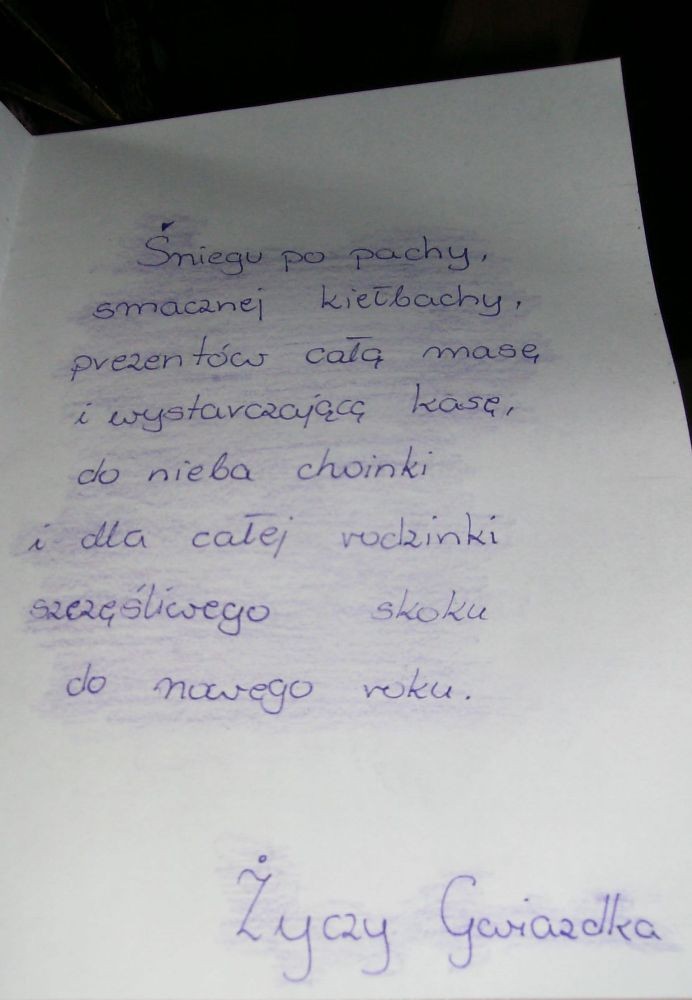 Śniegu po pachy,
smacznej kiełbachy,
prezentów całą masę
i wystarczającą kasę,
do nieba choinki
i dla całej rodzinki
szczęśliwego skoku
do nowego roku.
Życzy Gwiazdka